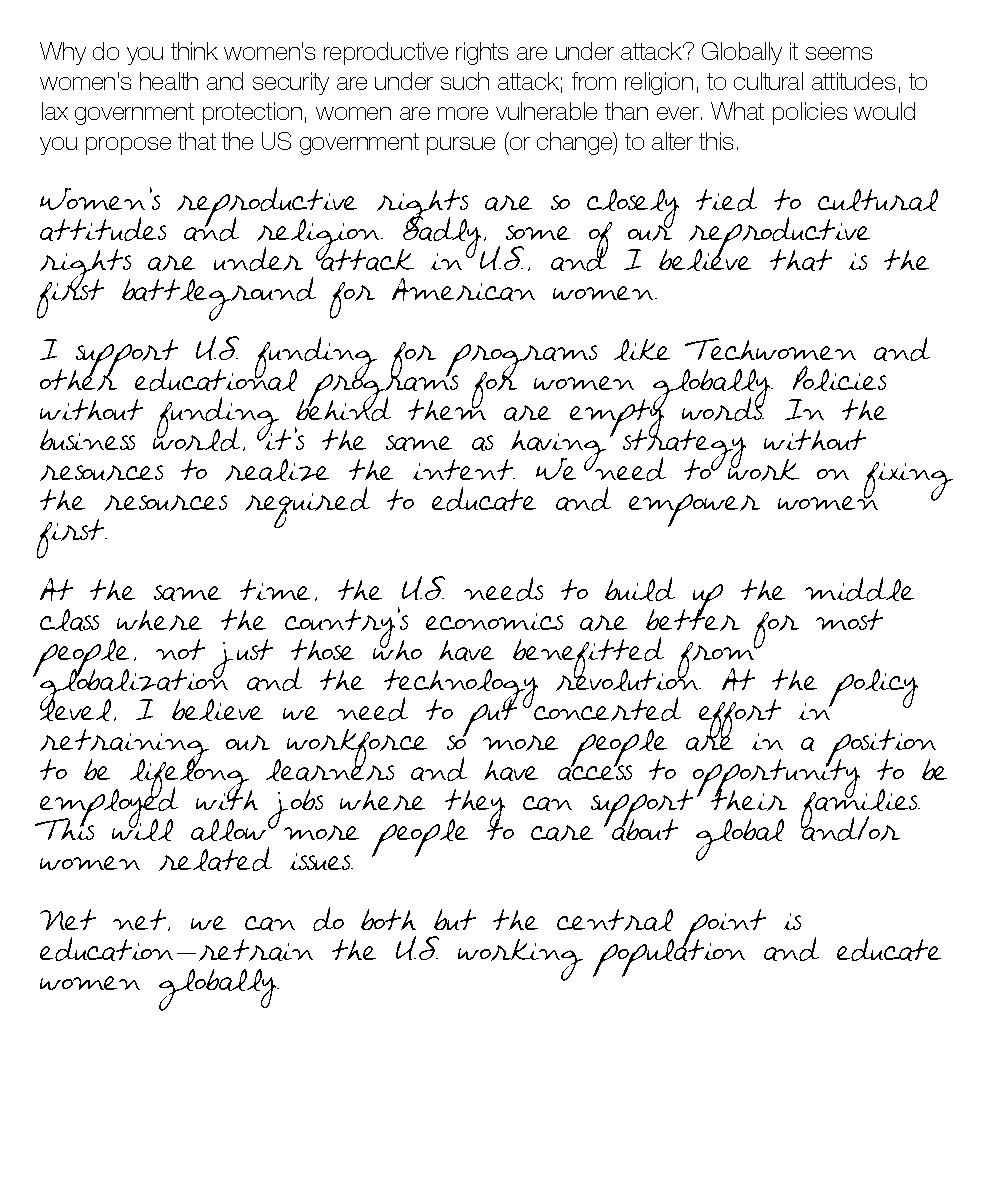 Why do you think women's reproductive rights are under attack? Globally it seems
women's health and security are under such attack; from religion, to cultural attitudes, to
lax government protection, women are more vulnerable than ever. What policies would
you propose that the US government pursue (or change) to alter this.
Women's reproductive rights are so closely tied to cultural
attitudes and religion. Sadly, some of our reproductive
rights are under attack in U.S., and I believe that is the
first battleground for American women.
I support U.S. funding for programs like Techwomen and
other educational programs for women globally. Policies
without funding behind them are empty words. In the
business world, it's the same as having strategy without
resources to realize the intent. We need to work on fixing
the resources required to educate and empower women
first.
At the same time, the U.S. needs to build up the middle
class where the country's economics are better for most
people, not just those who have benefitted from
globalization and the technology revolution. At the policy
level, I believe we need to put concerted effort in
retraining our workforce so more people are in a position
to be lifelong learners and have access to opportunity to be
employed with jobs where they can support their families.
This will allow more people to care about global and/or
women related issues.
Net net, we can do both but the central point is
education—retrain the U.S. working population and educate
women globally.